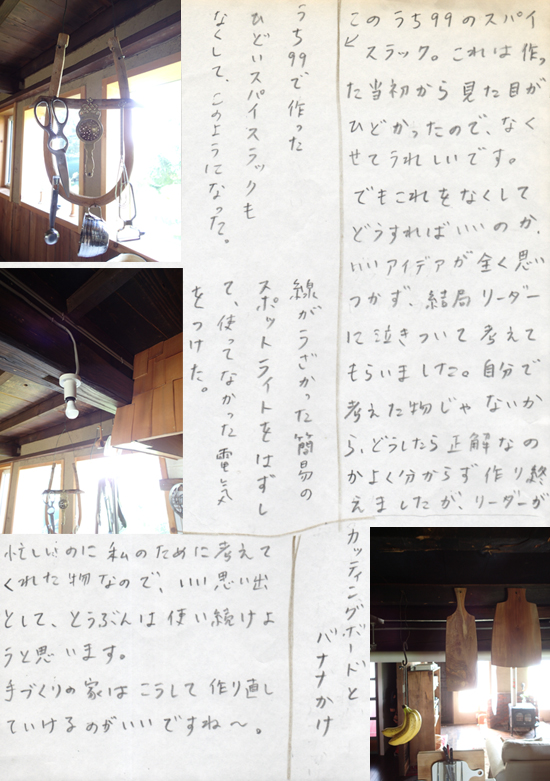 このうち99のスパイ
スラック。これは作っ
た当初から見た目が
ひどかったので、なく
せてうれしいです。
でもこれをなくして
どうすればいいのか、
いいアイデアが全く思い
つかず、結局リーダー
に泣きついて考えて
もらいました。自分で
考えた物じゃないか
ら、どうしたら正解なの
かよく分からず作り終
えましたが、リーダーが
忙しいのに私のために考えて
くれた物なので、いい思い出
として、とうぶんは使い続けよ
うと思います。
手づくりの家はこうして作り直し
ていけるのがいいですね〜。
うち99で作った
ひどいスパイスラックも
なくして、このようになった。
線がうざかった簡易の
スポットライトをはずし
て、使ってなかった電気
をつけた。
カッティングボードと
バナナかけ